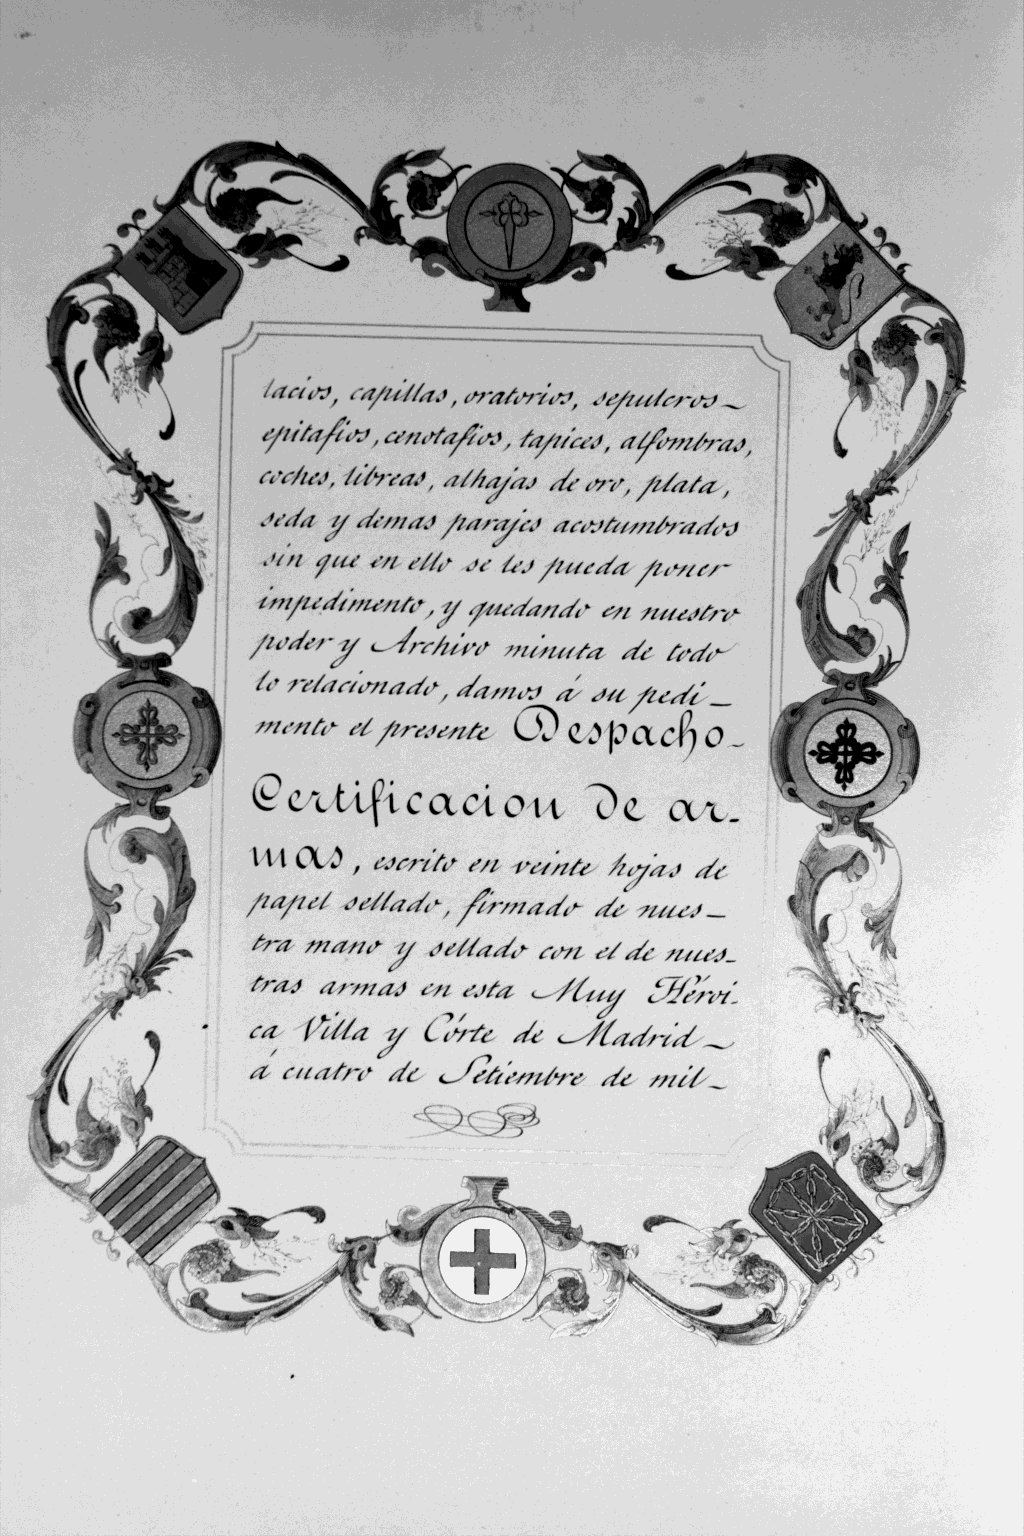 lacios, capillas, oratorios, sepulcros_
epitafios, cenotafios, tapices, alfombras,
coches, libreas, alhajas de oro, plata,
seda y demas parajes acostumbrados
sin que en ello se les pueda poner
impedimento, y quedando en nuestro
poder y Archivo minuta de todo
lo relacionado, damos á su pedi_
mento el presente Despacho_
Certificacion de ar_
mas, escrito en veinte hojas de
papel sellado, firmado de nues_
tra mano y sellado con el de nues_
tras armas en esta Muy Herói_
ca Villa y Córte de Madrid_
á cuatro de Setiembre de mil_